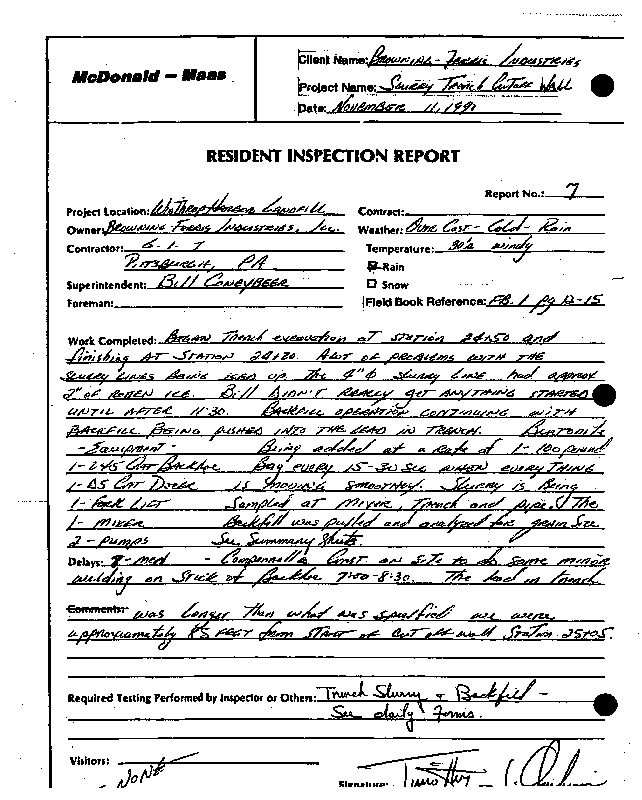 McDonald - Maas
Client Name: Browning-Ferris Industries
Project Name: Slurry Trench Cutoff Wall
Date: November 11, 1990
RESIDENT INSPECTION REPORT
Report No.: 7
Project Location: Winthrop Harbor Landfill
Owner: Browning Ferris Industries, Inc.
Contractor: G.I.T
Pittsburgh, PA
Superintendent: Bill Coneybeer
Foreman:
Contract:
Weather: Over Cast - Cold - Rain
Temperature: 30's windy
Rain
Snow
Field Book Reference: FB. 1 pg 12-15
Work Completed: Began Trench excavation at Station 24+50 and
finishing at Station 24+20. A lot of problems with the
slurry lines being iced up. The 4"Φ slurry line had approx
2" of ice. Bill didn't really get anything started
until after 11:30. Backfill operation continuing with
backfill being pushed into the lead in trench. Bentonite
- Equipment - Being added at a rate of 1-100 pound
1-245 Cat Backhoe Bag every 15-30 sec when everything
1-D5 Cat Dozer is smooving smoothly. Slurry is being
1-Fork Lift Sampled at Mixer, Trench and pipe. The
1-Mixer Backfill was pulled and analyzed for grain size
2-Pumps See Summary Sheets.
Delays: 8-men - Const on site to do some minor
welding on Stick of Backhoe 7:50-8:30. The lead in trench
Comments: was longer than what was specified we were
approxiamately 85 feet from start of cut off wall Station 25+05.
Required Testing Performed by Inspector or Others: Trench Slurry + Backfill -
See daily Forms.
Visitors:
NONE
Signature: Timothy